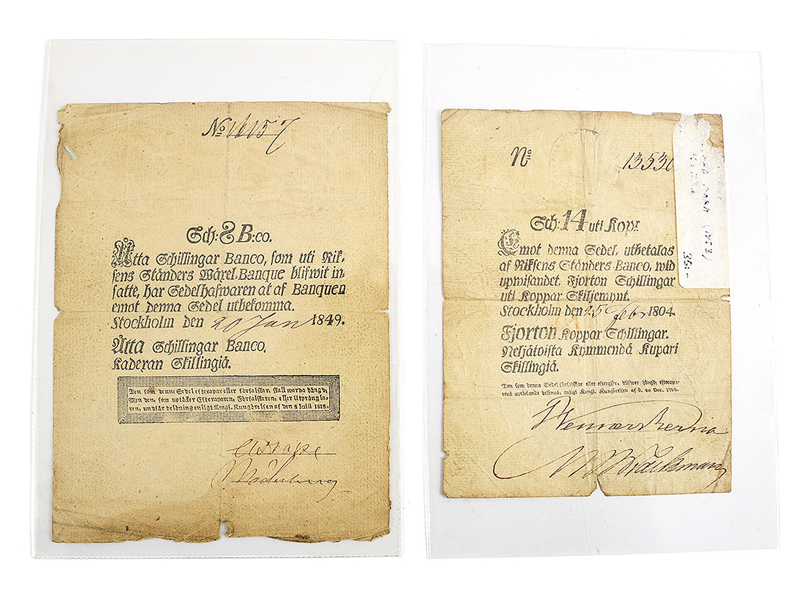 No 16157
Sch: 8 B:co.
Åtta Schillingar Banco, som uti Rik-
sens Ständers Wäxel-Banque blifwit in-
satte, har Sedelhafwaren at af Banquen
emot denna Sedel utbekomma.
Stockholm den 20 Jan 1849.
Åtta Schillingar Banco.
Kadexan Skillingiä.
Den som denna Sedel efterapar eller förfalskar, skall warda hängd;
Men den som uptäcker Efterapare, Förfalskare, eller Utprångla-
re, undfår belöning enligt Kongl. Kungörelsen af den
No 13530
Sch: 14 uti Kop:r
Emot denna Sedel, utbetalas
af Riksens Ständers Banco, wid
upwisandet, Fjorton Schillingar
uti Koppar Skiljemynt.
Stockholm den 25 Febr 1804.
Fjorton Koppar Schillingar.
Neljätoista Kymmendä Kupari
Skillingiä.
Den som denna Sedel förfalskar eller eftergör, blifwer hängd;
35:-